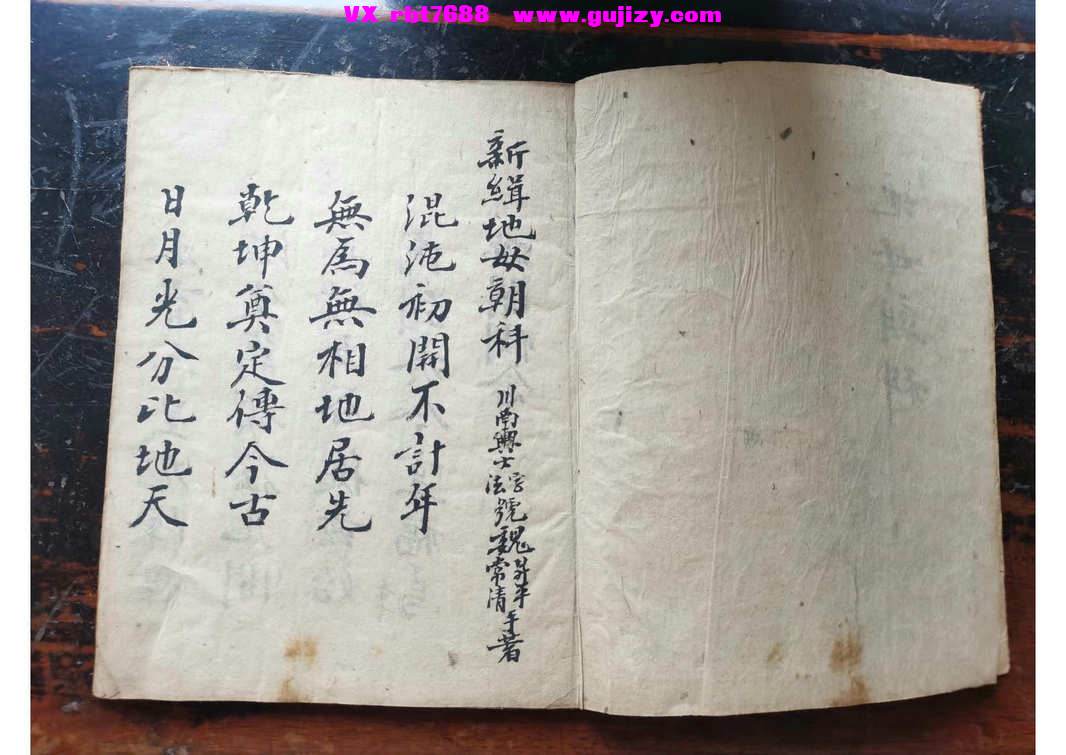 VX rbt7688 www.gujizy.com
新緝地女朝科 川南興士法字號魏常清昇平手著
混沌初開不計年
無為無相地居先
乾坤奠定傳今古
日月光分比地天